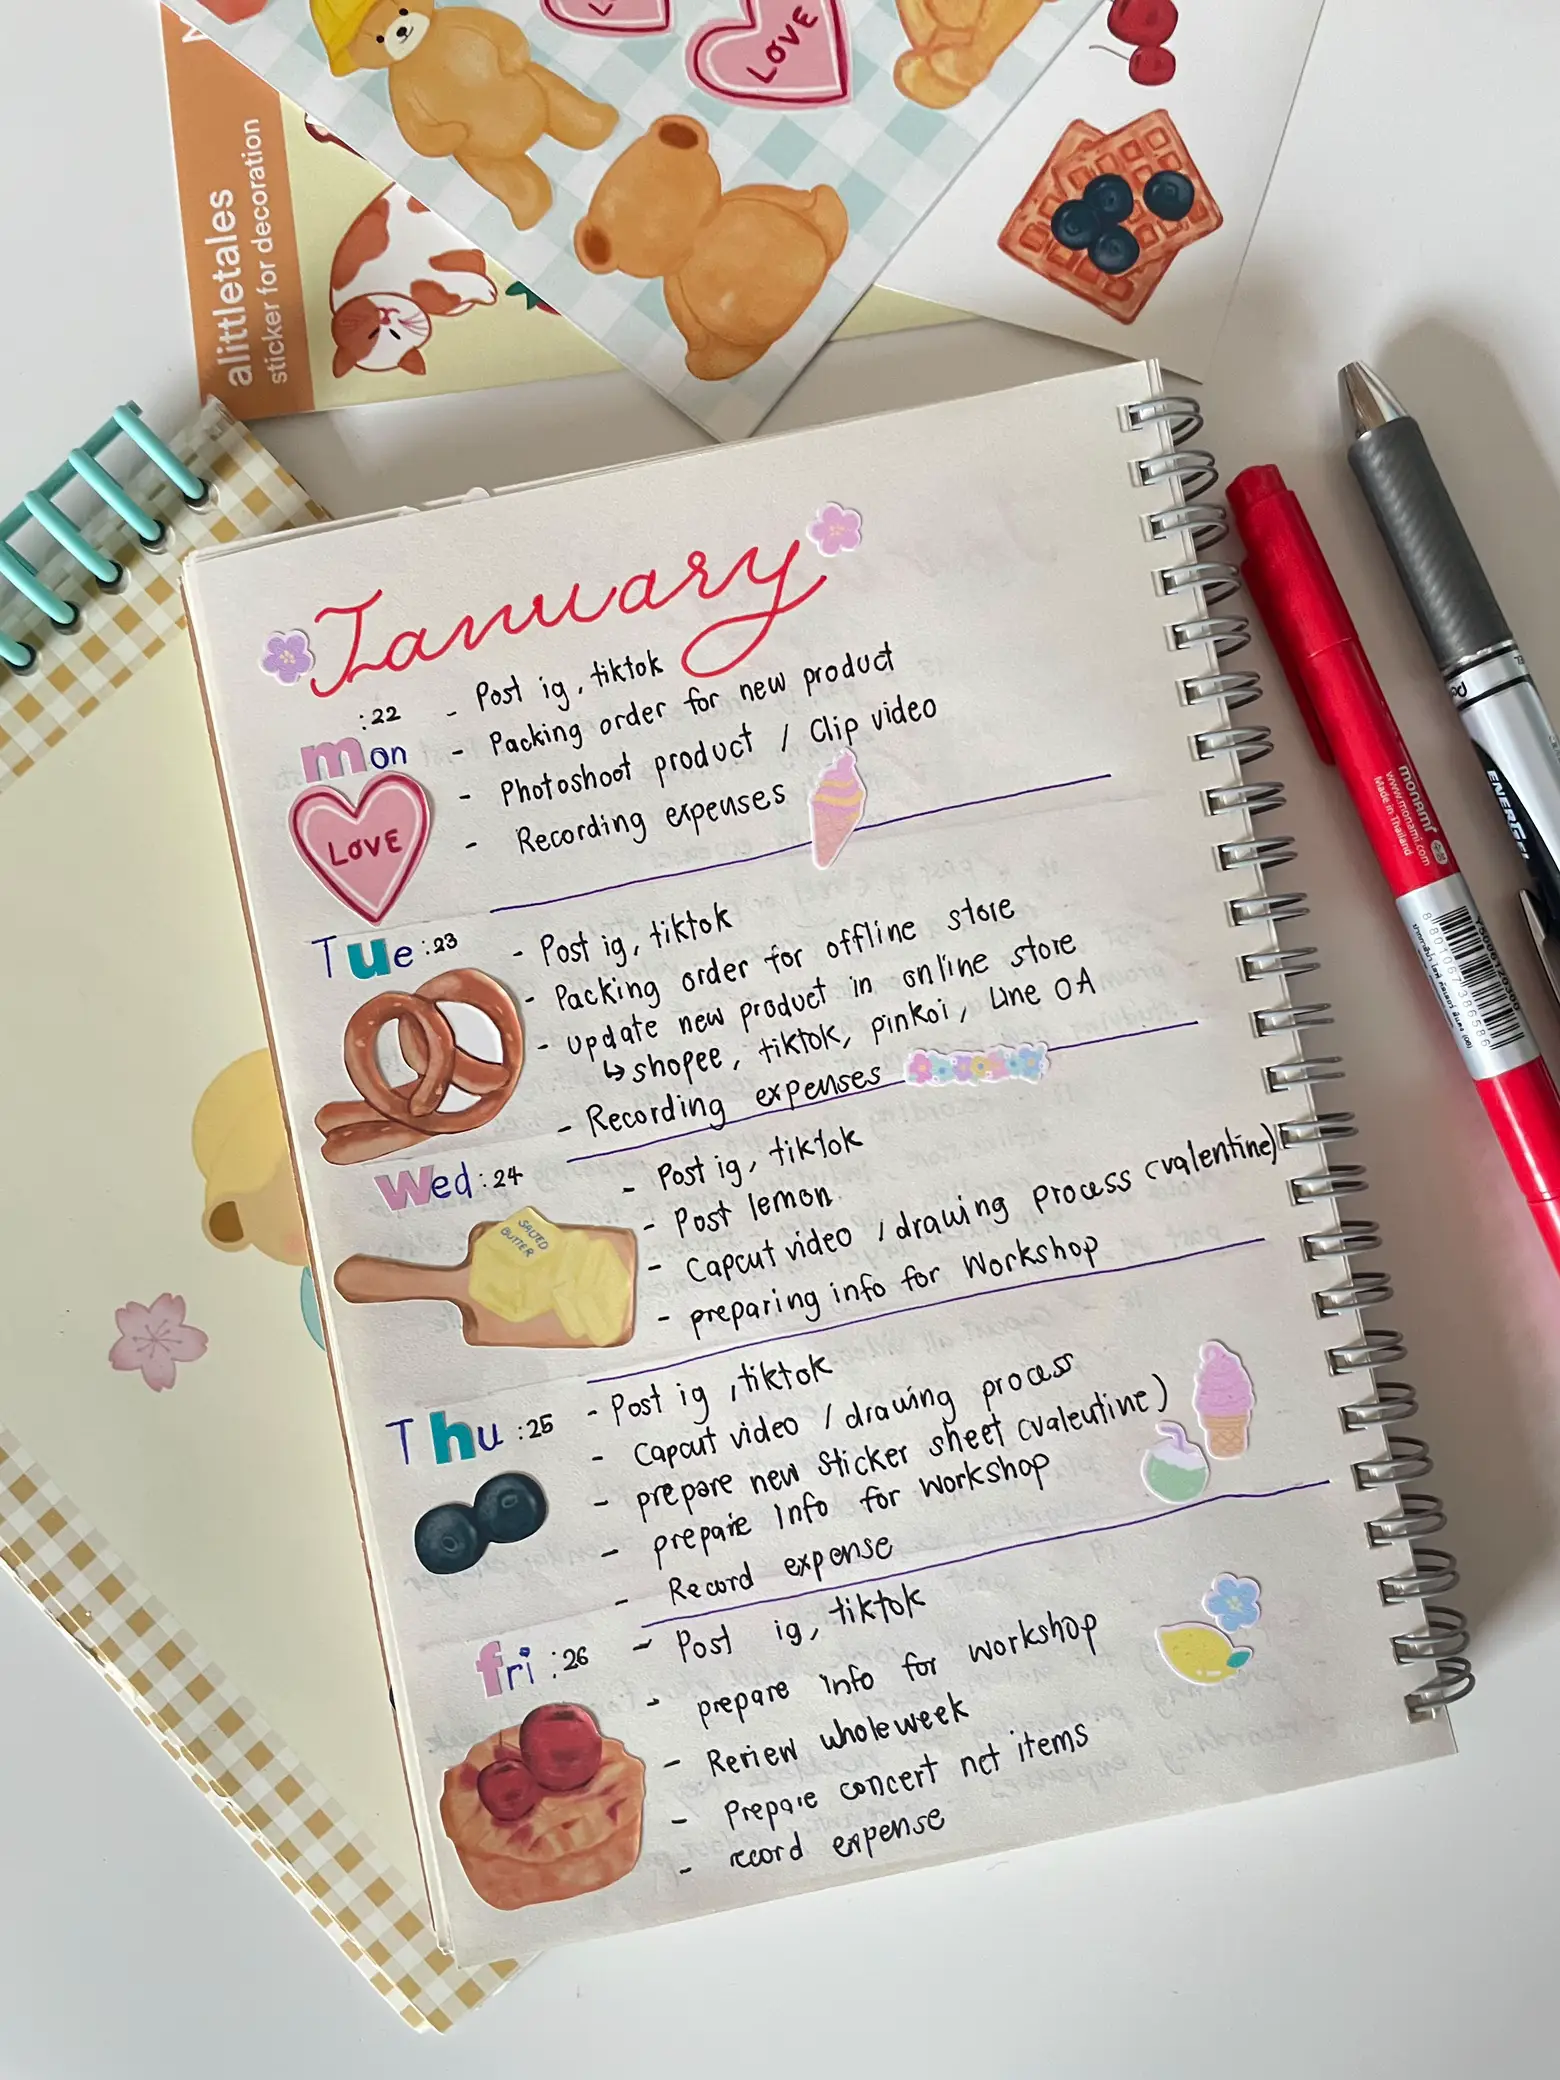 alittletales
sticker for decoration
LOVE
January
:22
mon
LOVE
- Post ig, tiktok
- Packing order for new product
- Photoshoot product / Clip video
- Recording expenses
Tue :23
- Post ig, tiktok
- Packing order for offline store
- update new product in online store
↳ shopee, tiktok, pinkoi, Line OA
- Recording expenses
Wed :24
SALTED
BUTTER
- Post ig, tiktok
- Post lemon
- Capcut video / drawing process (valentine)
- preparing info for Workshop
Thu :25
- Post ig, tiktok
- Capcut video / drawing process
- prepare new sticker sheet (valentine)
- prepare info for workshop
- Record expense
fri :26
- Post ig, tiktok
- prepare info for workshop
- Review whole week
- Prepare concert net items
- record expense
monami
www.monami.com
Made in Thailand
Y5006120300
8 801067 386586
ENERGEL